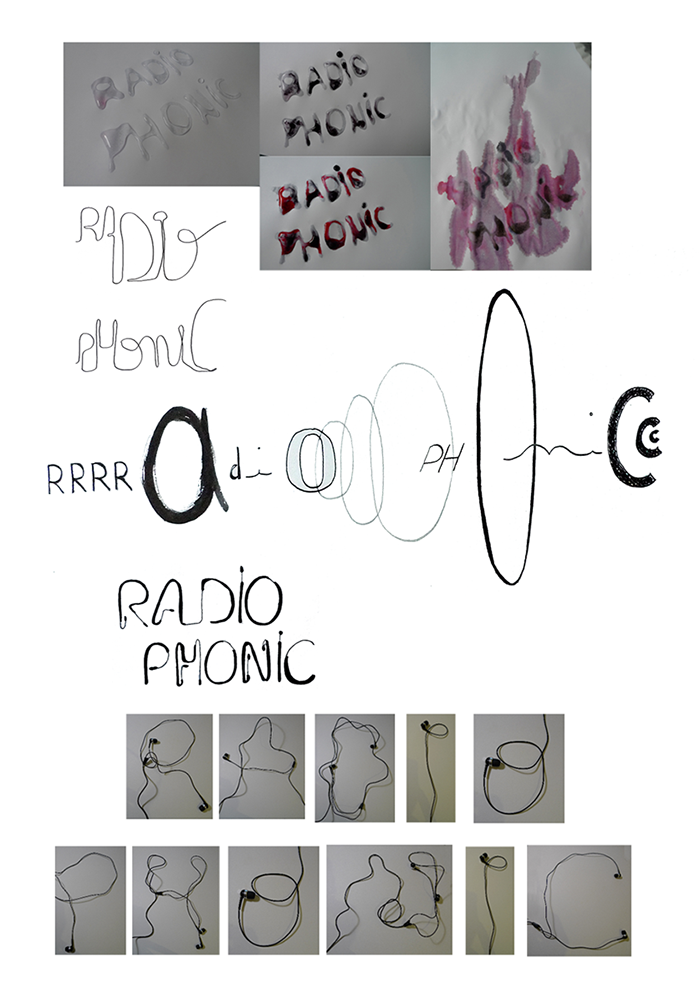 RADiO
PHONiC
RADiO
PHONiC
RADiO
PHONiC
RADiO
PHONiC
RADio
PHoniC
RRRRadiO PHOniCCC
RADiO
PHONiC
RADiO
PHONiC